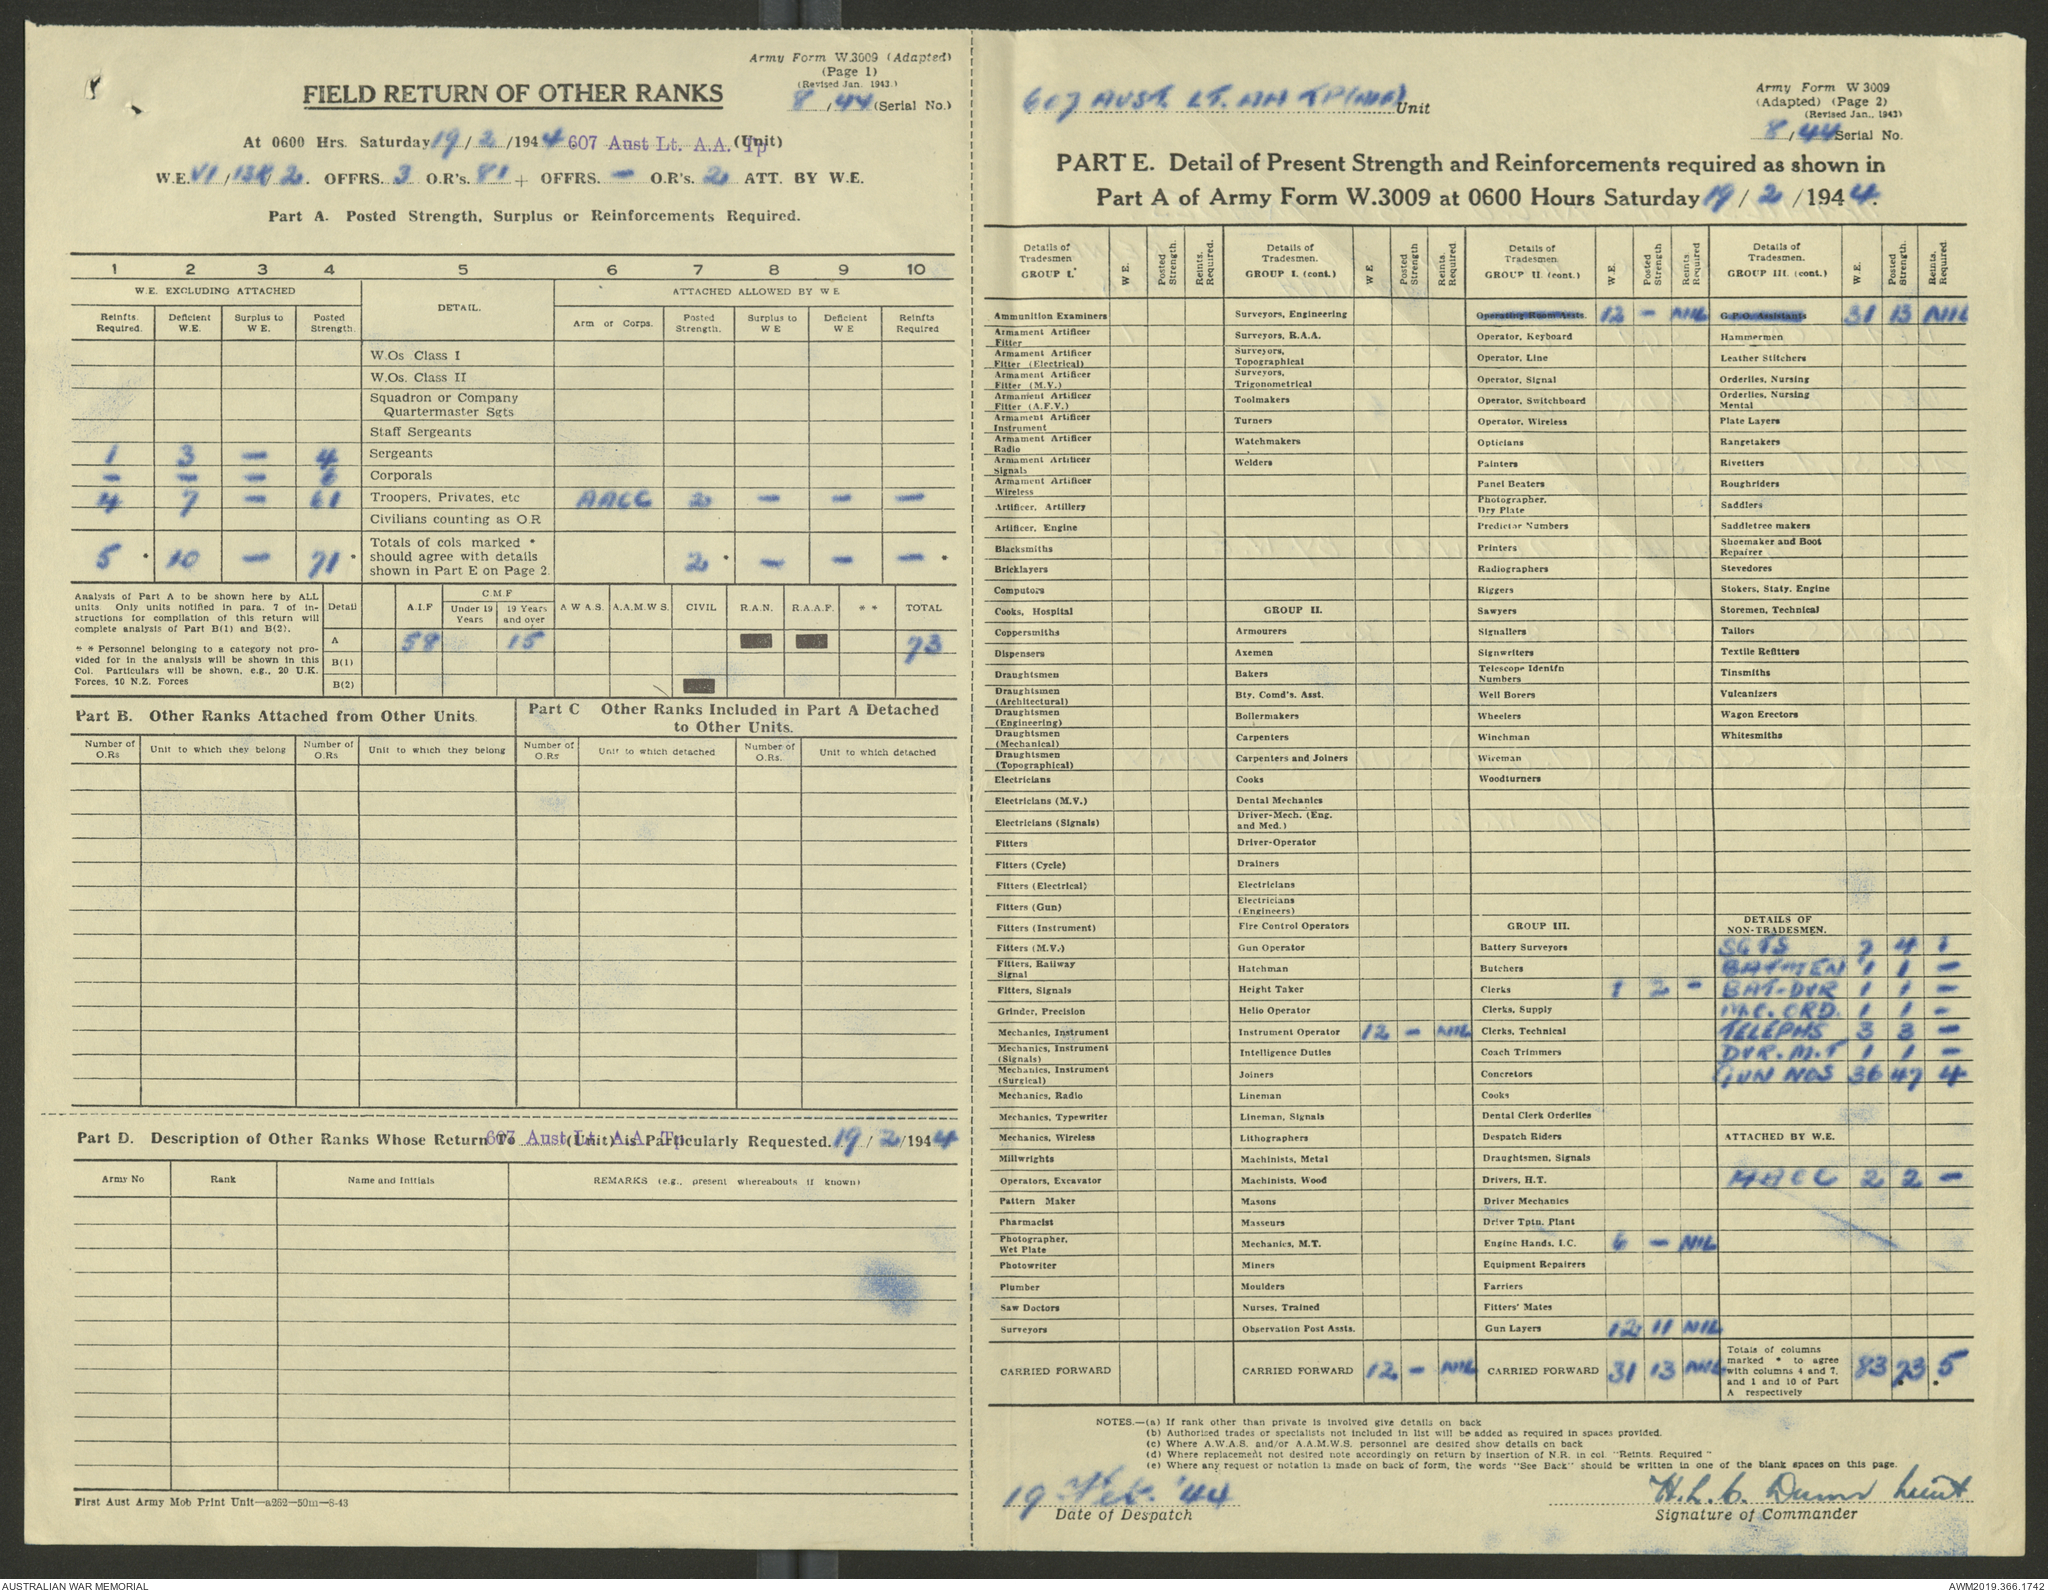 Army Form W.3009 (Adapted)
(Page 1)
(Revised Jan. 1943.)
8/44 (Serial No.)
FIELD RETURN OF OTHER RANKS
At 0600 Hrs. Saturday 19/2/1944 607 Aust Lt. A.A. Tp (Unit)
W.E. VI/13K/2. OFFRS. 3 O.R's. 81 + OFFRS. — O.R's. 2 ATT. BY W.E.
Part A. Posted Strength, Surplus or Reinforcements Required.
1 2 3 4 5 6 7 8 9 10
W.E. EXCLUDING ATTACHED DETAIL. ATTACHED ALLOWED BY W E
Reinfts. Required. Deficient W.E. Surplus to W E. Posted Strength. Arm or Corps. Posted Strength. Surplus to W E Deficient W E Reinfts Required
W.Os Class I
W.Os. Class II
Squadron or Company
Quartermaster Sgts
Staff Sergeants
1 3 — 4 Sergeants
— — — 6 Corporals
4 7 — 61 Troopers, Privates, etc AACC 2 — — —
Civilians counting as O.R
5 * 10 — 71 * Totals of cols marked * should agree with details shown in Part E on Page 2. 2 * — — — *
Analysis of Part A to be shown here by ALL
units. Only units notified in para. 7 of in-
structions for compilation of this return will
complete analysis of Part B(1) and B(2).
* * Personnel belonging to a category not pro-
vided for in the analysis will be shown in this
Col. Particulars will be shown, e.g., 20 U.K.
Forces, 10 N.Z. Forces
Detail A.I.F C.M.F Under 19 Years 19 Years and over A W A S. A.A.M.W S. CIVIL R.A.N. R.A.A.F. * * TOTAL
A 58 15 73
B(1)
B(2)
Part B. Other Ranks Attached from Other Units.
Part C Other Ranks Included in Part A Detached
to Other Units.
Number of O.Rs Unit to which they belong Number of O.Rs Unit to which they belong Number of O.Rs Unit to which detached Number of O.Rs. Unit to which detached
Part D. Description of Other Ranks Whose Return To 607 Aust Lt. A.A. Tp (Unit) is Particularly Requested. 19/2/1944
Army No Rank Name and Initials REMARKS (e.g., present whereabouts if known)
First Aust Army Mob Print Unit—a262—50m—8-43
607 AUST. LT. AA TP Unit
Army Form W 3009
(Adapted) (Page 2)
(Revised Jan., 1943)
8/44 Serial No.
PART E. Detail of Present Strength and Reinforcements required as shown in
Part A of Army Form W.3009 at 0600 Hours Saturday 19/2/1944.
Details of Tradesmen. GROUP I. W E. Posted Strength. Reints. Required.
Ammunition Examiners
Armament Artificer Fitter
Armament Artificer Fitter (Electrical)
Armament Artificer Fitter (M.V.)
Armament Artificer Fitter (A.F.V.)
Armament Artificer Instrument
Armament Artificer Radio
Armament Artificer Signals
Armament Artificer Wireless
Artificer, Artillery
Artificer, Engine
Blacksmiths
Bricklayers
Computors
Cooks, Hospital
Coppersmiths
Dispensers
Draughtsmen
Draughtsmen (Architectural)
Draughtsmen (Engineering)
Draughtsmen (Mechanical)
Draughtsmen (Topographical)
Electricians
Electricians (M.V.)
Electricians (Signals)
Fitters
Fitters (Cycle)
Fitters (Electrical)
Fitters (Gun)
Fitters (Instrument)
Fitters (M.V.)
Fitters, Railway Signal
Fitters, Signals
Grinder, Precision
Mechanics, Instrument
Mechanics, Instrument (Signals)
Mechanics, Instrument (Surgical)
Mechanics, Radio
Mechanics, Typewriter
Mechanics, Wireless
Millwrights
Operators, Excavator
Pattern Maker
Pharmacist
Photographer, Wet Plate
Photowriter
Plumber
Saw Doctors
Surveyors
CARRIED FORWARD
Details of Tradesmen. GROUP I. (cont.) W E Posted Strength Reints. Required
Surveyors, Engineering
Surveyors, R.A.A.
Surveyors, Topographical
Surveyors, Trigonometrical
Toolmakers
Turners
Watchmakers
Welders
GROUP II.
Armourers
Axemen
Bakers
Bty. Comd's. Asst.
Boilermakers
Carpenters
Carpenters and Joiners
Cooks
Dental Mechanics
Driver-Mech. (Eng. and Med.)
Driver-Operator
Drainers
Electricians
Electricians (Engineers)
Fire Control Operators
Gun Operator
Hatchman
Height Taker
Helio Operator
Instrument Operator 12 — NIL
Intelligence Duties
Joiners
Lineman
Lineman, Signals
Lithographers
Machinists, Metal
Machinists, Wood
Masons
Masseurs
Mechanics, M.T.
Miners
Moulders
Nurses, Trained
Observation Post Assts.
CARRIED FORWARD 12 — NIL
Details of Tradesmen GROUP II. (cont.) W.E. Posted Strength Reints. Required
Operating Room Assts. 12 — NIL
Operator, Keyboard
Operator, Line
Operator, Signal
Operator, Switchboard
Operator, Wireless
Opticians
Painters
Panel Beaters
Photographer, Dry Plate
Predictor Numbers
Printers
Radiographers
Riggers
Sawyers
Signallers
Signwriters
Telescope Identfn Numbers
Well Borers
Wheelers
Winchman
Wireman
Woodturners
GROUP III.
Battery Surveyors
Butchers
Clerks 1 2 —
Clerks, Supply
Clerks, Technical
Coach Trimmers
Concretors
Cooks
Dental Clerk Orderlies
Despatch Riders
Draughtsmen, Signals
Drivers, H.T.
Driver Mechanics
Driver Tptn. Plant
Engine Hands, I.C. 6 — NIL
Equipment Repairers
Farriers
Fitters' Mates
Gun Layers 12 11 NIL
CARRIED FORWARD 31 13 NIL
Details of Tradesmen. GROUP III. (cont.) W.E. Posted Strength. Reints. Required.
G.P.O. Assistants 31 13 NIL
Hammermen
Leather Stitchers
Orderlies, Nursing
Orderlies, Nursing Mental
Plate Layers
Rangetakers
Rivetters
Roughriders
Saddlers
Saddletree makers
Shoemaker and Boot Repairer
Stevedores
Stokers, Staty. Engine
Storemen, Technical
Tailors
Textile Refitters
Tinsmiths
Vulcanizers
Wagon Erectors
Whitesmiths
DETAILS OF NON-TRADESMEN.
SGTS 7 4 1
BATMEN 1 1 —
BAT-DVR 1 1 —
M.C. ORD. 1 1 —
TELEPHS 3 3 —
DVR. M.T 1 1 —
GUN NOS 36 47 4
ATTACHED BY W.E.
AACC 2 2 —
Totals of columns marked * to agree with columns 4 and 7, and 1 and 10 of Part A respectively 83 73 5
NOTES.—(a) If rank other than private is involved give details on back
(b) Authorised trades or specialists not included in list will be added as required in spaces provided.
(c) Where A.W.A.S. and/or A.A.M.W.S. personnel are desired show details on back
(d) Where replacement not desired note accordingly on return by insertion of N.R. in col. "Reints. Required"
(e) Where any request or notation is made on back of form, the words "See Back" should be written in one of the blank spaces on this page.
19 Feb. '44
Date of Despatch
H.L.C. Dunn Lieut
Signature of Commander
AUSTRALIAN WAR MEMORIAL
AWM2019.366.1742